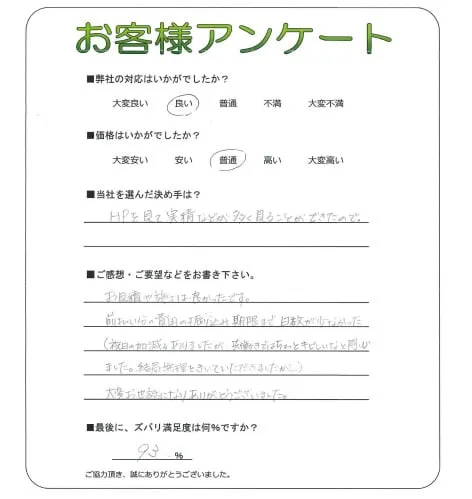 お客様アンケート
■弊社の対応はいかがでしたか？
大変良い 良い 普通 不満 大変不満
■価格はいかがでしたか？
大変安い 安い 普通 高い 大変高い
■当社を選んだ決め手は？
HPを見て実績などが多く見ることができたので。
■ご感想・ご要望などをお書き下さい。
お見積や施工は良かったです。
前払い分の費用のお振り込み期限まで日数が少なかった
(祝日の加減もありましたが 共働きではちょっときびしいなと思い
ました。結局無理をきいていただきましたが…)
大変お世話になりありがとうございました。
■最後に、ズバリ満足度は何％ですか？
93 %
ご協力頂き、誠にありがとうございました。